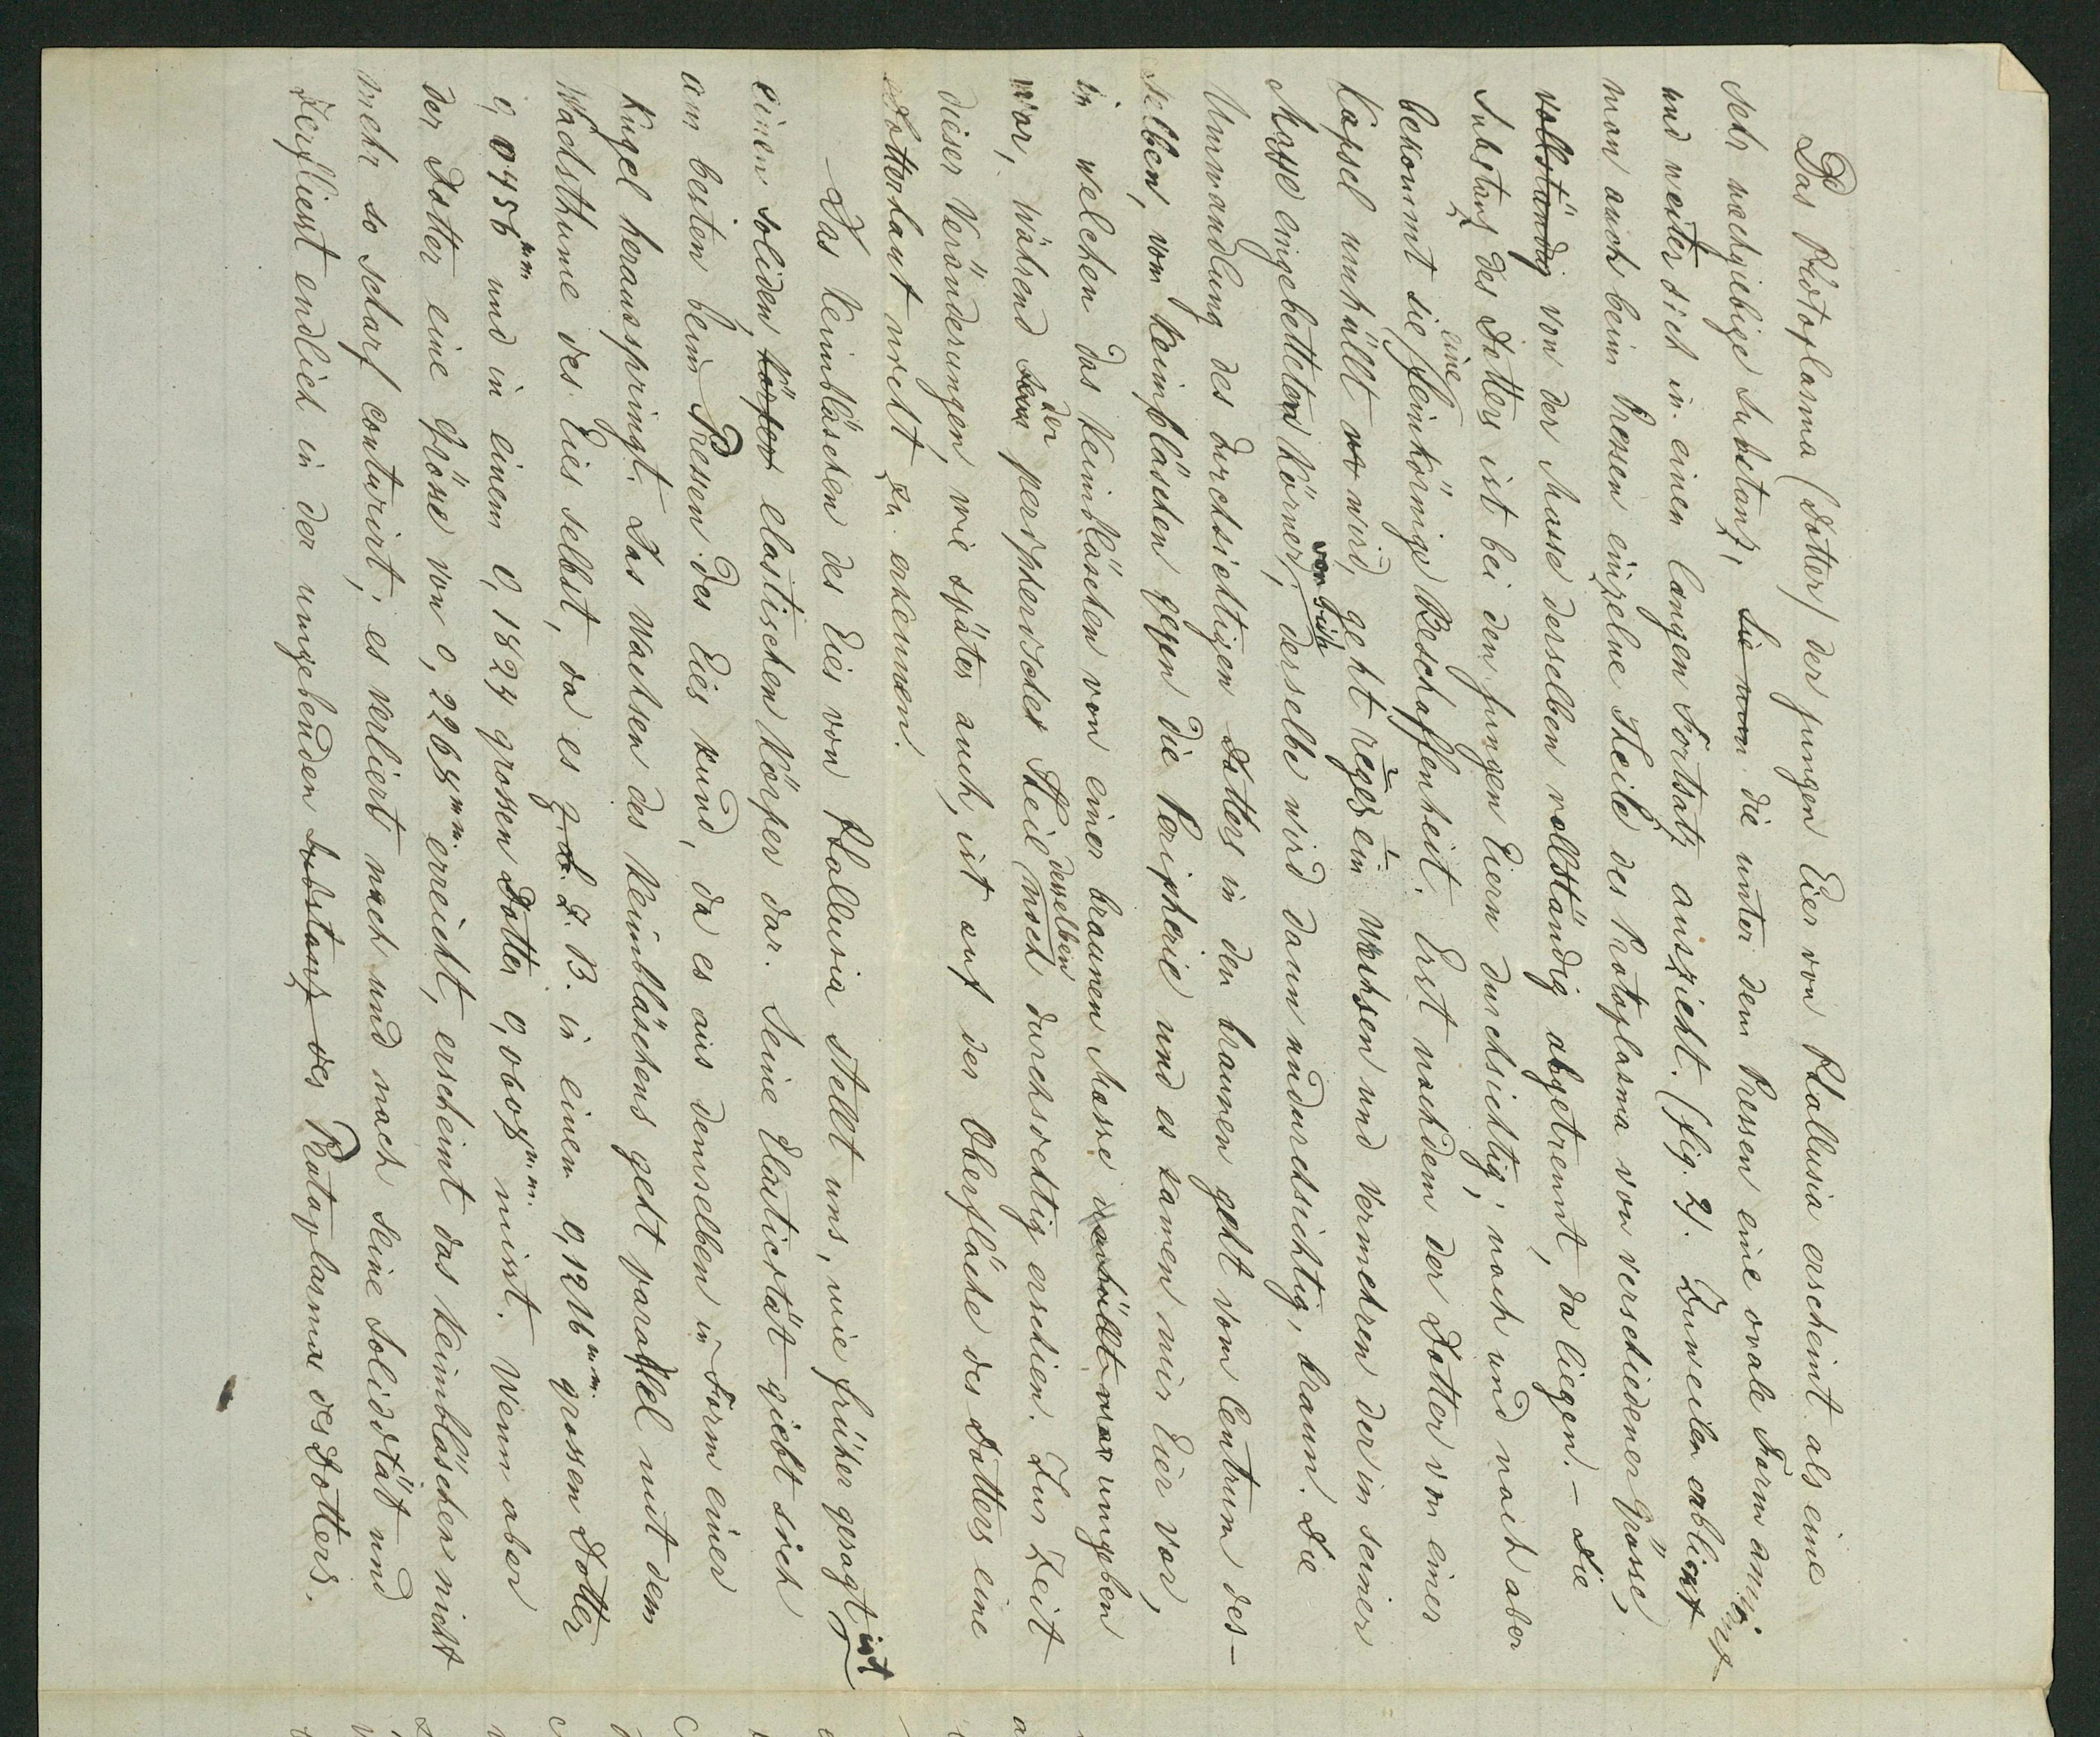 Das Protoplasma (Dotter) der jungen Eier von Phallusia erscheint als eine
sehr nachgiebige Substanz, Sie nun die unter dem Pressen eine ovale Form annimt
und weiter sich in einen langen Fortsatz auszieht. (fig. 2). Zuweilen erblickt
man auch beim Pressen einzelne Theile des Protoplasma von verschiedener Grösse,
vollständig von der Masse derselben vollständig abgetrennt, da liegen. – Die
Substanz des Dotters ist bei den jungen Eiern durchsichtig; nach und nach aber
bekommt sie eine feinkörnige Beschaffenheit. Erst nachdem der Dotter von einer
Kapsel umhüllt wird, geht reges ein Wachsen und Vermehren der in seiner
Masse eingebetteten Körner, vor sich; derselbe wird dann undurchsichtig, braun. Die
Umwandlung des durchsichtigen Dotters in den braunen geht vom Centrum des-
selben, vom Keimbläschen gegen die Peripherie und es kamen mir Eier vor,
in welchen das Keimbläschen von einer braunen Masse umhüllt war umgeben
war, während der peripherische Theil desselben noch durchsichtig erschien. Zur Zeit
dieser Veränderungen, wie später auch, ist auf der Oberfläche des Dotters eine
Dotterhaut nicht zu erkennen.
Das Keimbläschen des Eies von Phallusia stellt uns, wie früher gesagt ist
einen soliden, Körper elastischen Körper dar. Seine Elasticität giebt sich
am besten beim Pressen des Eies kund, da es aus demselben in Form einer
Kugel herausspringt. Das Wachsen des Keimbläschens geht parallel mit dem
Wachsthume des Eies selbst, da es z. B. in einem 0,1216 mm. grossen Dotter
0,0456 mm und in einem 0,1824 grossen Dotter 0,0608 mm. misst. Wenn aber
der Dotter eine Grösse von 0,2268 mm. erreicht, erscheint das Keimbläschen nicht
mehr so scharf conturirt; es verliert nach und nach seine Solidität und
zerfliesst endlich in der umgebenden Substanz des Protoplasma des Dotters.